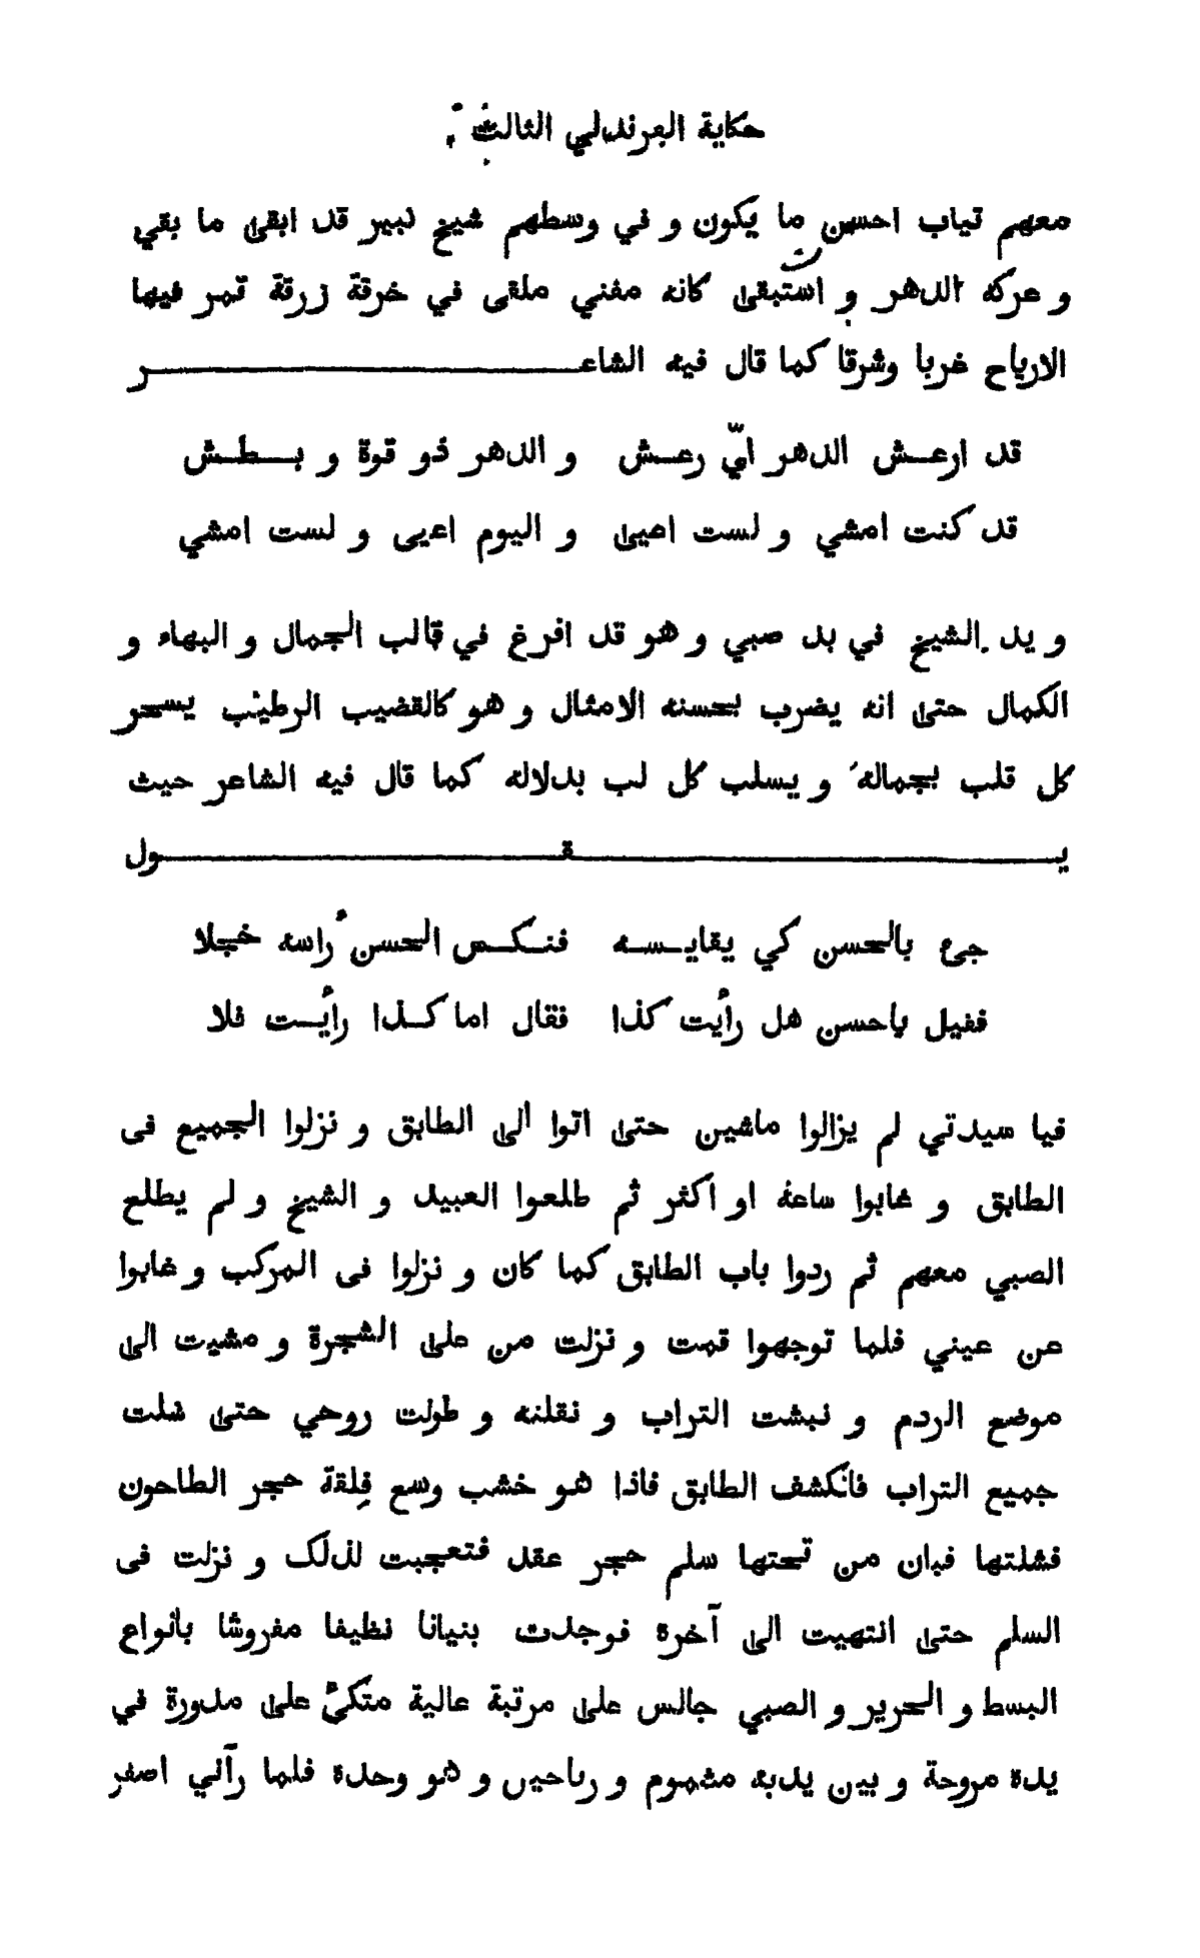 حكاية القرندلي الثالث
معهم تياب احسن ما يكون و في وسطهم شيخ كبير قد ابقى ما بقي
و عركه الدهر و استبقى كانه مفني ملقى في خرقة زرقة تمر فيها
الارياح غربا وشرقا كما قال فيه الشاعـــــر
قد ارعـش الدهر ايّ رعـش و الدهر ذو قوة و بـطـش
قد كنت امشي و لست اعيى و اليوم اعيى و لست امشي
و يد الشيخ في يد صبي و هو قد افرغ في قالب الجمال و البهاء و
الكمال حتى انه يضرب بحسنه الامثال و هو كالقضيب الرطيب يسحر
كل قلب بجماله و يسلب كل لب بدلاله كما قال فيه الشاعر حيث
يـــــقـــــول
جئ بالحسن كي يقايـسـه فنـكـس الحسن رأسه خجلا
فقيل ياحسن هل رأيت كذا فقال اما كـذا رأيـت فلا
فيا سيدتي لم يزالوا ماشين حتى اتوا الى الطابق و نزلوا الجميع فى
الطابق و غابوا ساعة او اكثر ثم طلعوا العبيد و الشيخ و لم يطلع
الصبي معهم ثم ردوا باب الطابق كما كان و نزلوا فى المركب و غابوا
عن عيني فلما توجهوا قمت و نزلت من على الشجرة و مشيت الى
موضع الردم و نبشت التراب و نقلته و طولت روحي حتى شلت
جميع التراب فانكشف الطابق فاذا هو خشب وسع فلقة حجر الطاحون
فشلتها فبان من تحتها سلم حجر عقد فتعجبت لذلك و نزلت فى
السلم حتى انتهيت الى آخرة فوجدت بنيانا نظيفا مفروشا بانواع
البسط و الحرير و الصبي جالس على مرتبة عالية متكئ على مدورة في
يدة مروحة و بين يديه مشموم و رياحين و هو وحدة فلما رآني اصفر